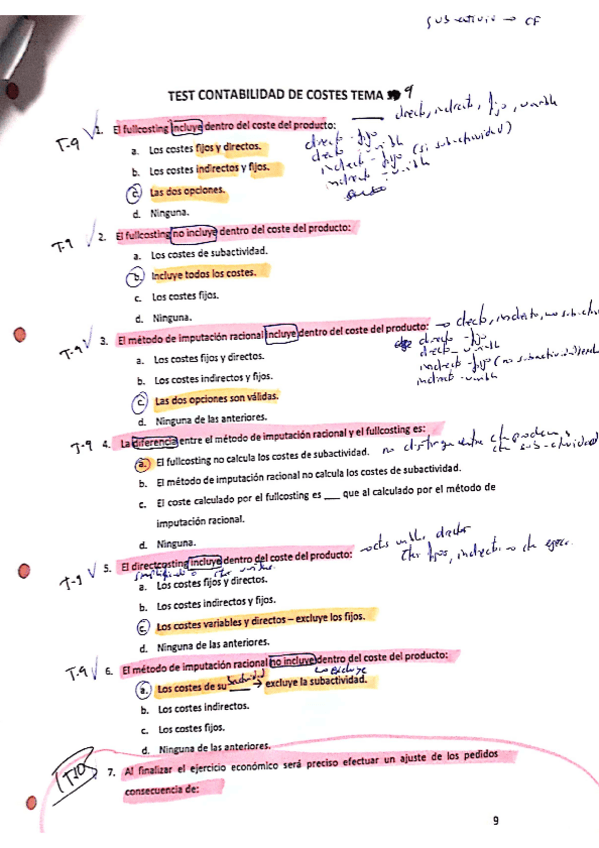 subactividad → CF
TEST CONTABILIDAD DE COSTES TEMA 9
T-9 1. El fullcosting incluye dentro del coste del producto:
directo, indirecto, fijo, variable
a. Los costes fijos y directos.
directo - fijo
directo - variable
b. Los costes indirectos y fijos.
indirecto - fijo (si subactividad)
indirecto - variable
c. Las dos opciones.
d. Ninguna.
T-9 2. El fullcosting no incluye dentro del coste del producto:
a. Los costes de subactividad.
b. Incluye todos los costes.
c. Los costes fijos.
d. Ninguna.
T-9 3. El método de imputación racional incluye dentro del coste del producto:
→ directo, indirecto, no
a. Los costes fijos y directos.
directo - fijo
directo - variable
b. Los costes indirectos y fijos.
indirecto - fijo (no subactividad)
indirecto - variable
c. Las dos opciones son válidas.
d. Ninguna de las anteriores.
T-9 4. La diferencia entre el método de imputación racional y el fullcosting es:
a. El fullcosting no calcula los costes de subactividad.
no distingue entre
b. El método de imputación racional no calcula los costes de subactividad.
c. El coste calculado por el fullcosting es ___ que al calculado por el método de
imputación racional.
d. Ninguna.
T-9 5. El directcosting incluye dentro del coste del producto:
a. Los costes fijos y directos.
b. Los costes indirectos y fijos.
c. Los costes variables y directos – excluye los fijos.
d. Ninguna de las anteriores.
T-9 6. El método de imputación racional no incluye dentro del coste del producto:
→ excluye
a. Los costes de subactividad ___ → excluye la subactividad.
b. Los costes indirectos.
c. Los costes fijos.
d. Ninguna de las anteriores.
T10 7. Al finalizar el ejercicio económico será preciso efectuar un ajuste de los pedidos
consecuencia de:
9